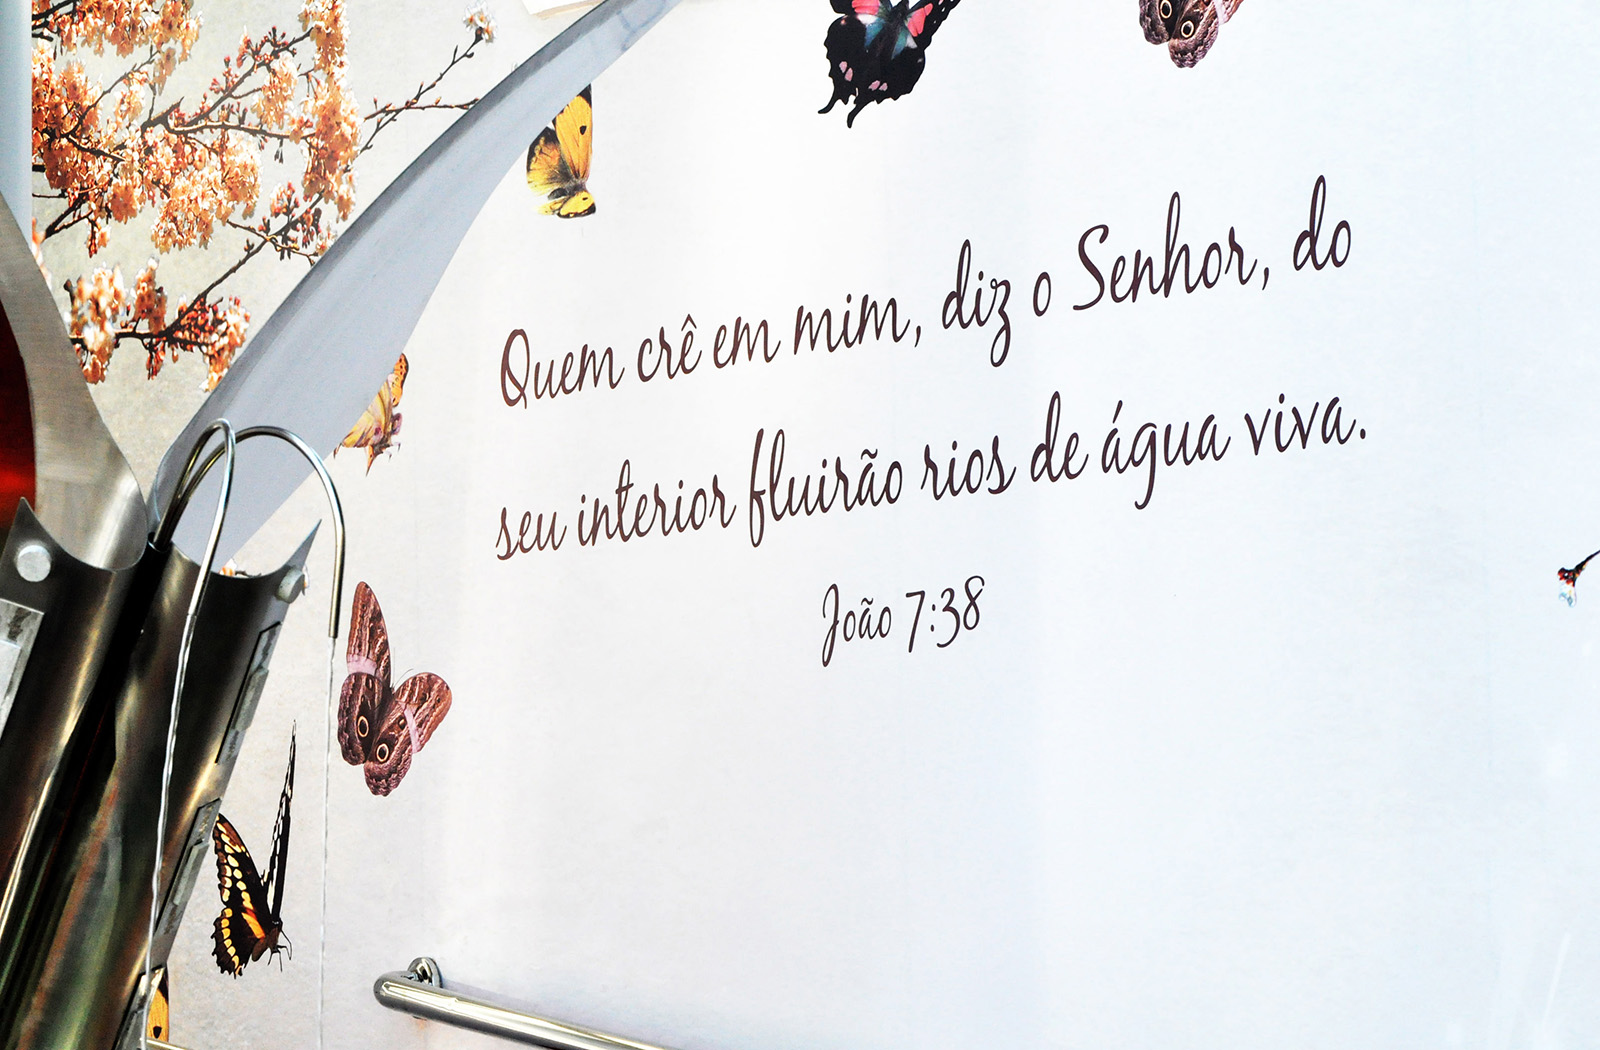 Quem crê em mim, diz o Senhor, do
seu interior fluirão rios de água viva.
João 7:38